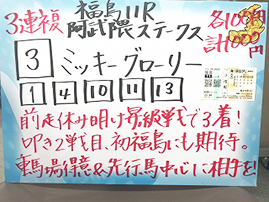 3連複
福島11R
阿武隈ステークス
各100円
計1000円
3 ミッキーグローリー
1 4 10 11 13
前走休み明け昇級戦で3着!
叩き2戦目、初福島にも期待。
重馬場得意&先行馬中心に相手を!